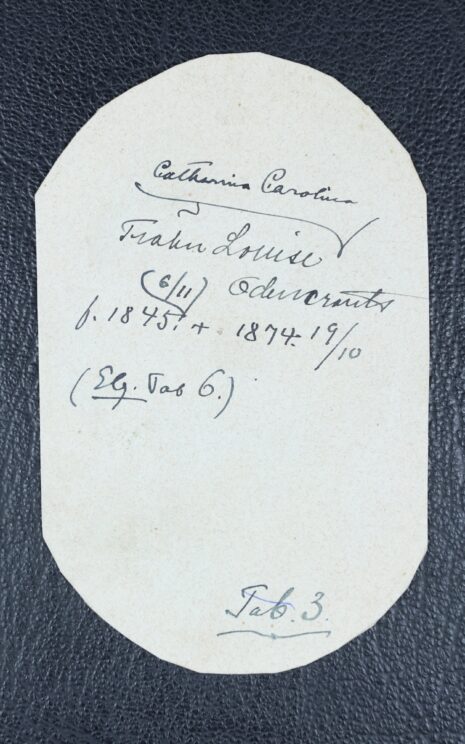 Catharina Carolina
Louise
(6/11) Odencrants
f. 1845. + 1874 19/10
(Elg. Tab 6.)
Tab. 3.